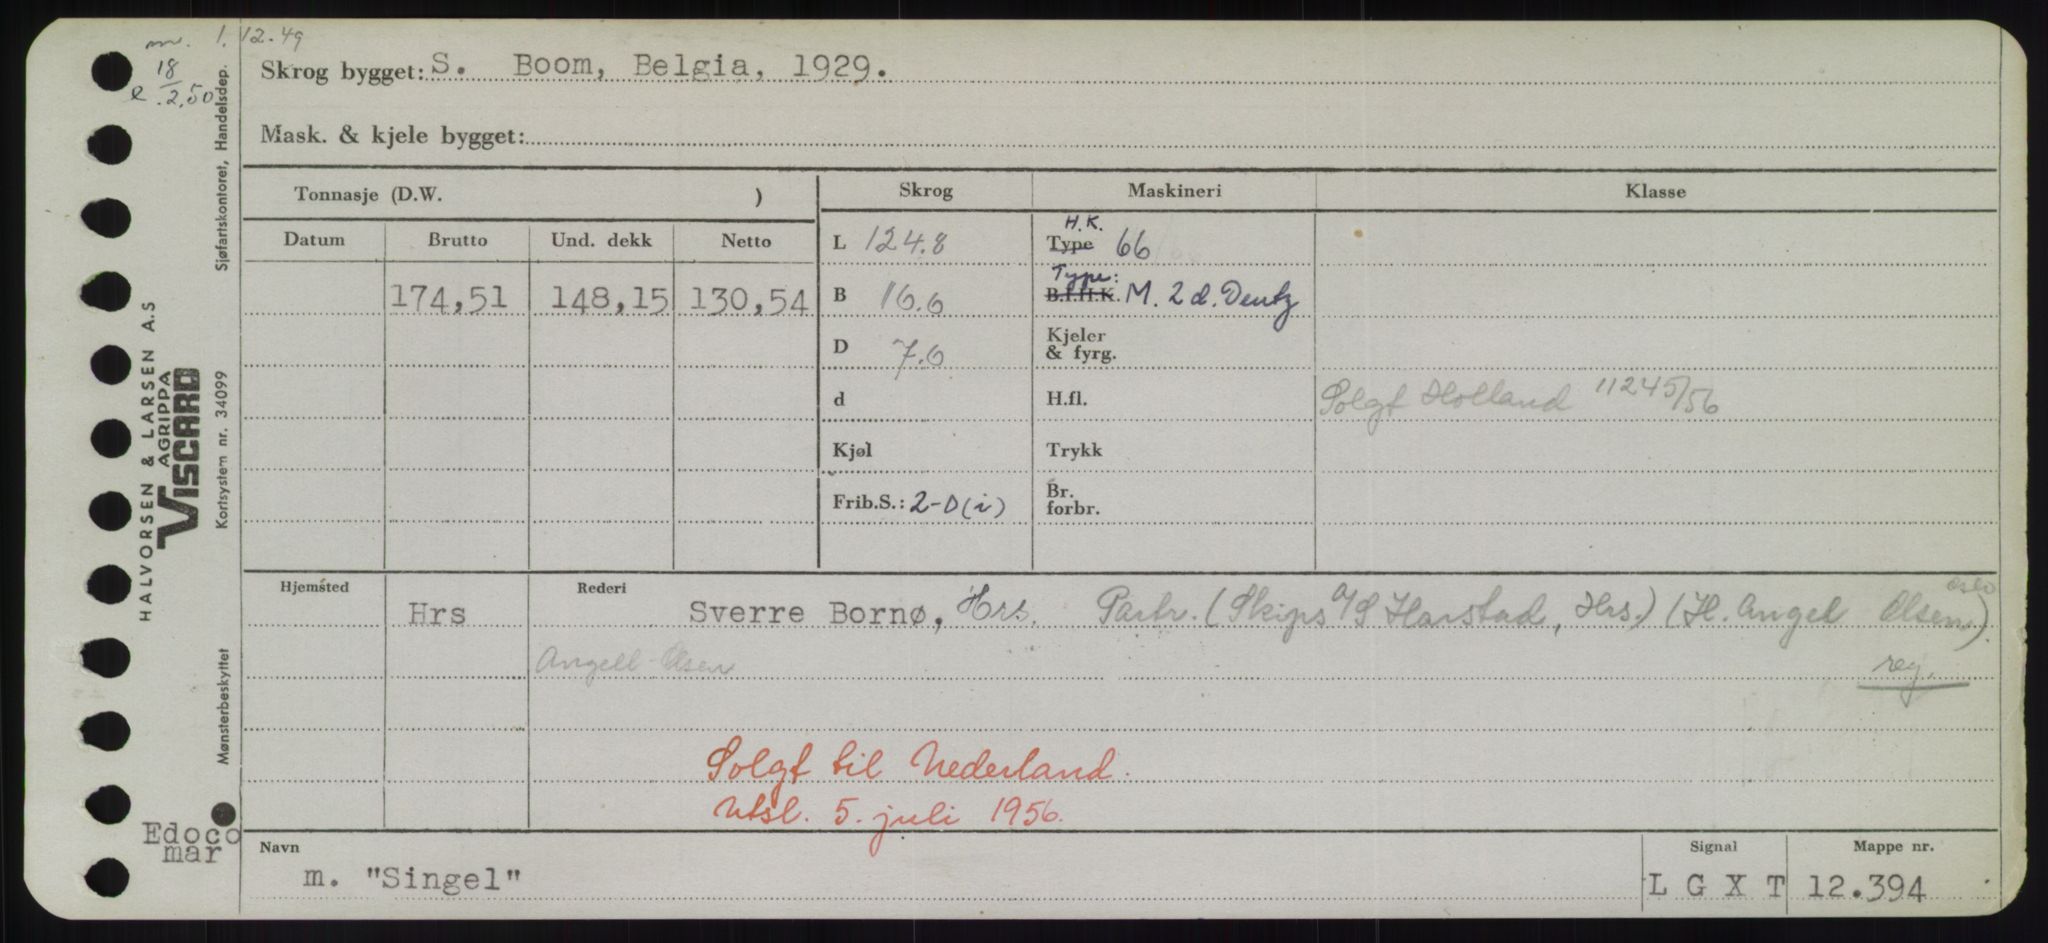 m. 1.12.49
18
e 2.50
Skrog bygget: S. Boom, Belgia, 1929.
Mask. & kjele bygget:
Tonnasje (D.W. )
Skrog Maskineri Klasse
Datum Brutto Und. dekk Netto
L 124.8 H.K. Type 66
174,51 148,15 130,54
B 16.6 Type: B.I.H.K. M. 2 d. Deutz
D 7.6 Kjeler & fyrg.
d H.fl. Solgt Holland 11245/56
Kjøl Trykk
Frib.S.: 2-D(i) Br. forbr.
Hjemsted Rederi
Hrs Sverre Bornø, Hrs. Partr. (Skips A/S Harstad, Hrs.) (H. Angel Olsen, Oslo)
Angell-Olsen reg.
Solgt til Nederland.
Utsl. 5. juli 1956.
Navn Signal Mappe nr.
m. "Singel" L G X T 12.394
Edoco
mar
HALVORSEN & LARSEN A.S
AGRIPPA
VISCARD
Mønsterbeskyttet Kortsystem nr. 34099 Sjøfartskontoret, Handelsdep.